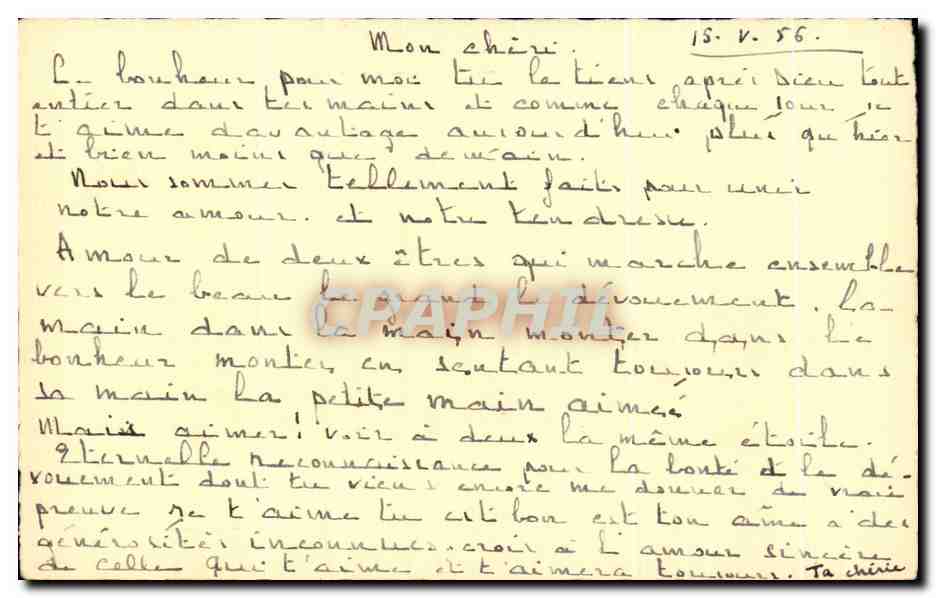 Mon chéri. 15. V. 56.
Le bonheur pour moi tu le tiens après Dieu tout
entier dans tes mains et comme chaque jour je
t'aime davantage aujourd'hui plus qu'hier
et bien moins que demain.
Nous sommes tellement faits pour unir
notre amour. et notre tendresse.
Amour de deux êtres qui marche ensemble
vers le beau le grand le dévouement. La
main dans la main monter dans le
bonheur monter en sentant toujours dans
sa main la petite main aimée
Mais aimer! voir à deux la même étoile.
Eternelle reconnaissance pour la bonté et le dé-
vouement dont tu viens encore me donner de vraie
preuve Je t'aime tu est bon est ton âme a des
générosités inconnues. crois à l'amour sincère
de celle qui t'aime et t'aimera toujours. Ta chérie
CPAPHIL